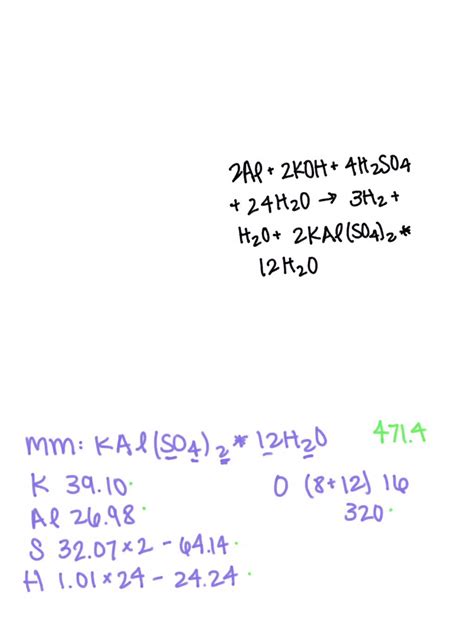 2Al + 2KOH + 4H₂SO4
+ 24H₂O → 3H₂ +
H₂O + 2KAl(SO4)₂ *
12H₂O
mm: KAl(SO4)₂ * 12H₂O 471.4
K 39.10 · O (8+12) 16
Al 26.98 · 320 ·
S 32.07 × 2 - 64.14 ·
H 1.01 × 24 - 24.24 ·